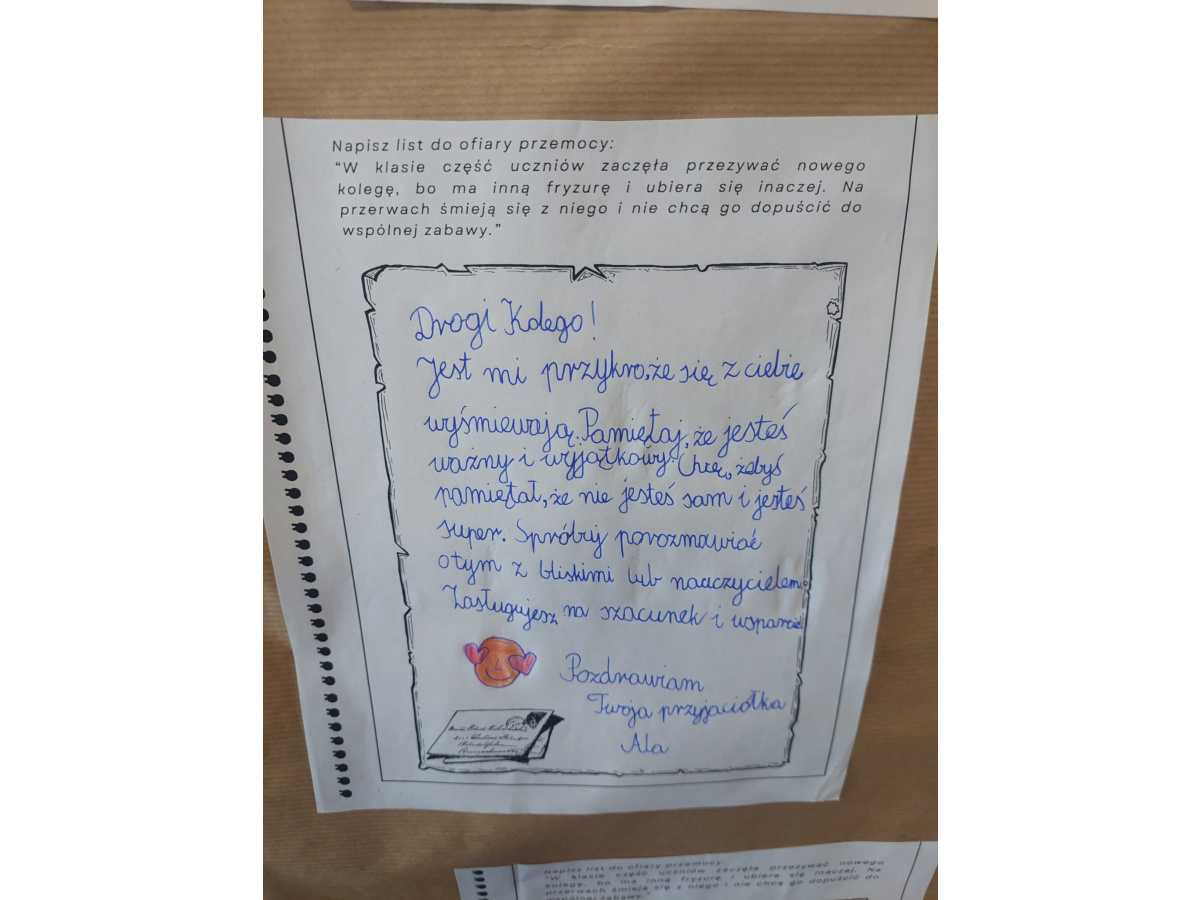 Napisz list do ofiary przemocy:
“W klasie część uczniów zaczęła przezywać nowego
kolegę, bo ma inną fryzurę i ubiera się inaczej. Na
przerwach śmieją się z niego i nie chcą go dopuścić do
wspólnej zabawy.”
Drogi Kolego!
Jest mi przykro, że się z ciebie
wyśmiewają. Pamiętaj, że jesteś
ważny i wyjątkowy. Chcę, żebyś
pamiętał, że nie jesteś sam i jesteś
super. Spróbuj porozmawiać
o tym z bliskimi lub nauczycielem.
Zasługujesz na szacunek i wsparcie
Pozdrawiam
Twoja przyjaciółka
Ala
Napisz list do ofiary przemocy:
“W klasie część uczniów zaczęła przezywać nowego
kolegę, bo ma inną fryzurę i ubiera się inaczej. Na
przerwach śmieją się z niego i nie chcą go dopuścić do
wspólnej zabawy.”